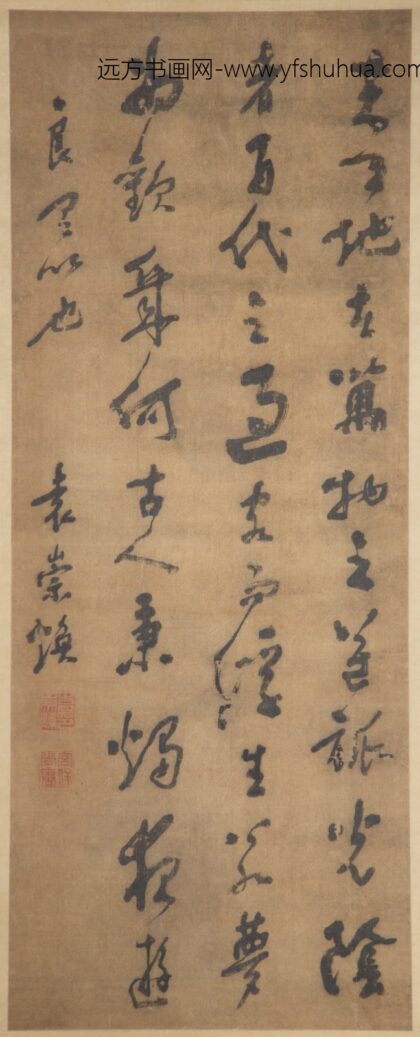 远方书画网-www.yfshuhua.com
夫天地者萬物之逆旅光陰
者百代之過客而浮生若夢
為歡幾何古人秉燭夜遊
良有以也
袁崇煥